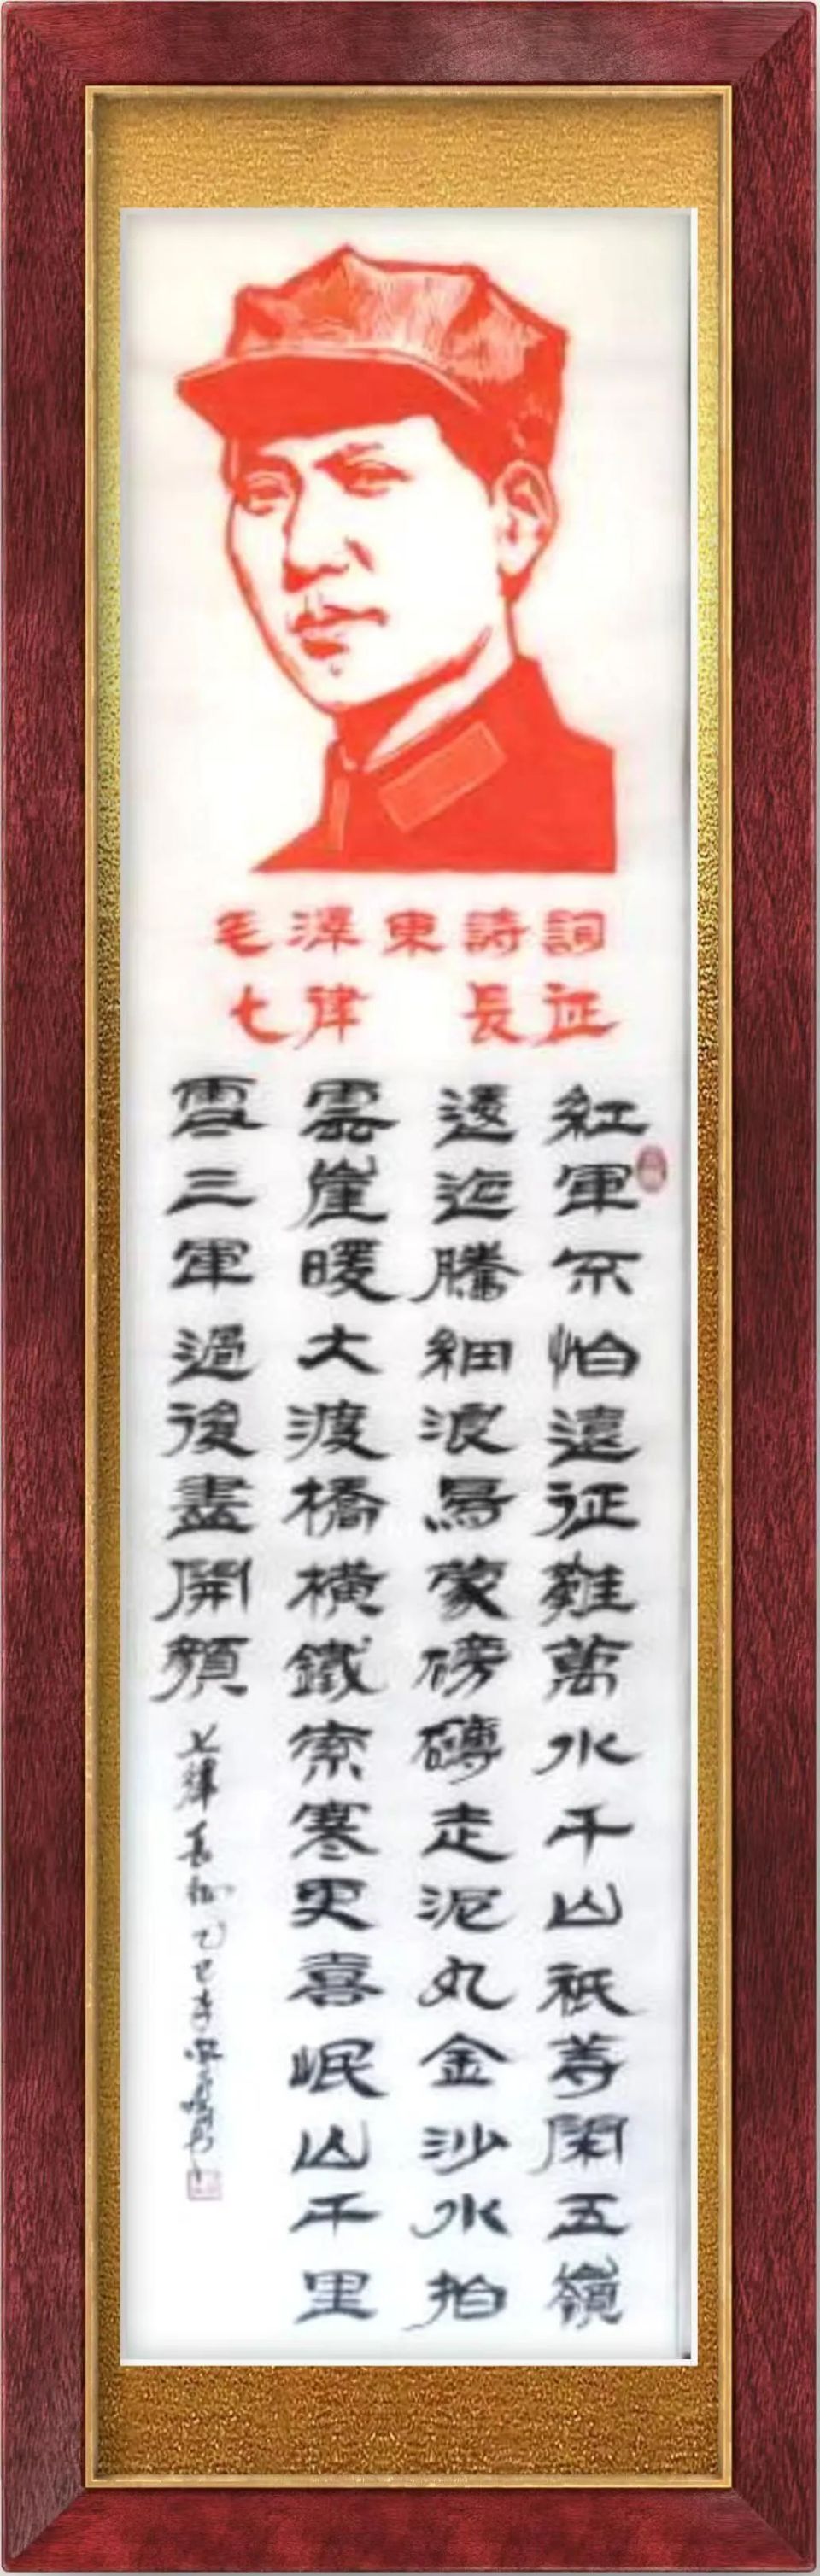 毛澤東詩詞
七律 長征
紅軍不怕遠征難萬水千山祇等閑五嶺
逶迤騰細浪烏蒙磅礴走泥丸金沙水拍
雲崖暖大渡橋橫鐵索寒更喜岷山千里
雪三軍過後盡開顏
七律長征乙巳年